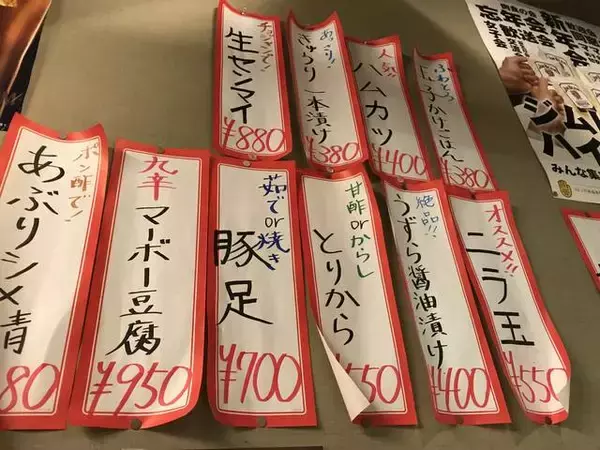 チョジャンで!
生センマイ
¥880
あっさり!
きゅうり一本漬け
¥380
人気!!
ハムカツ
¥400
ふわとろ
玉子かけごはん
¥380
ポン酢で!
あぶりシメ青
80
九辛
マーボー豆腐
¥950
茹でor焼き
豚足
¥700
甘酢orからし
とりから
550
絶品!!
うずら醤油漬け
¥400
オススメ!!
ニラ玉
¥550
忘年会
新年会
歓送迎会
ジム
ハイ
みんな集